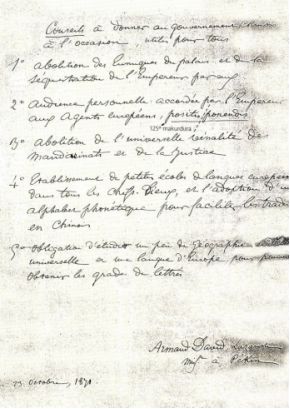 Conseils à donner au gouvernement Chinois
à l'occasion, utiles pour tous
1° abolition des Eunuques du palais et de la
séquestration de l'Empereur par eux.
2° Audience personnelle accordée par l'Empereur
aux Agents européens,
3° abolition de l'universelle vénalité des
Mandarinats et de la Justice
4° Etablissement de petites écoles de langues européennes
dans tous les chefs-lieux, et l'adoption d'un
alphabet phonétique pour faciliter les trad.
en Chinois
5° obligation d'étudier un peu de Géographie
universelle et une langue d'Europe pour pouvoir
obtenir les grades de lettrés
Armand David
à Pékin
23 octobre, 1871.